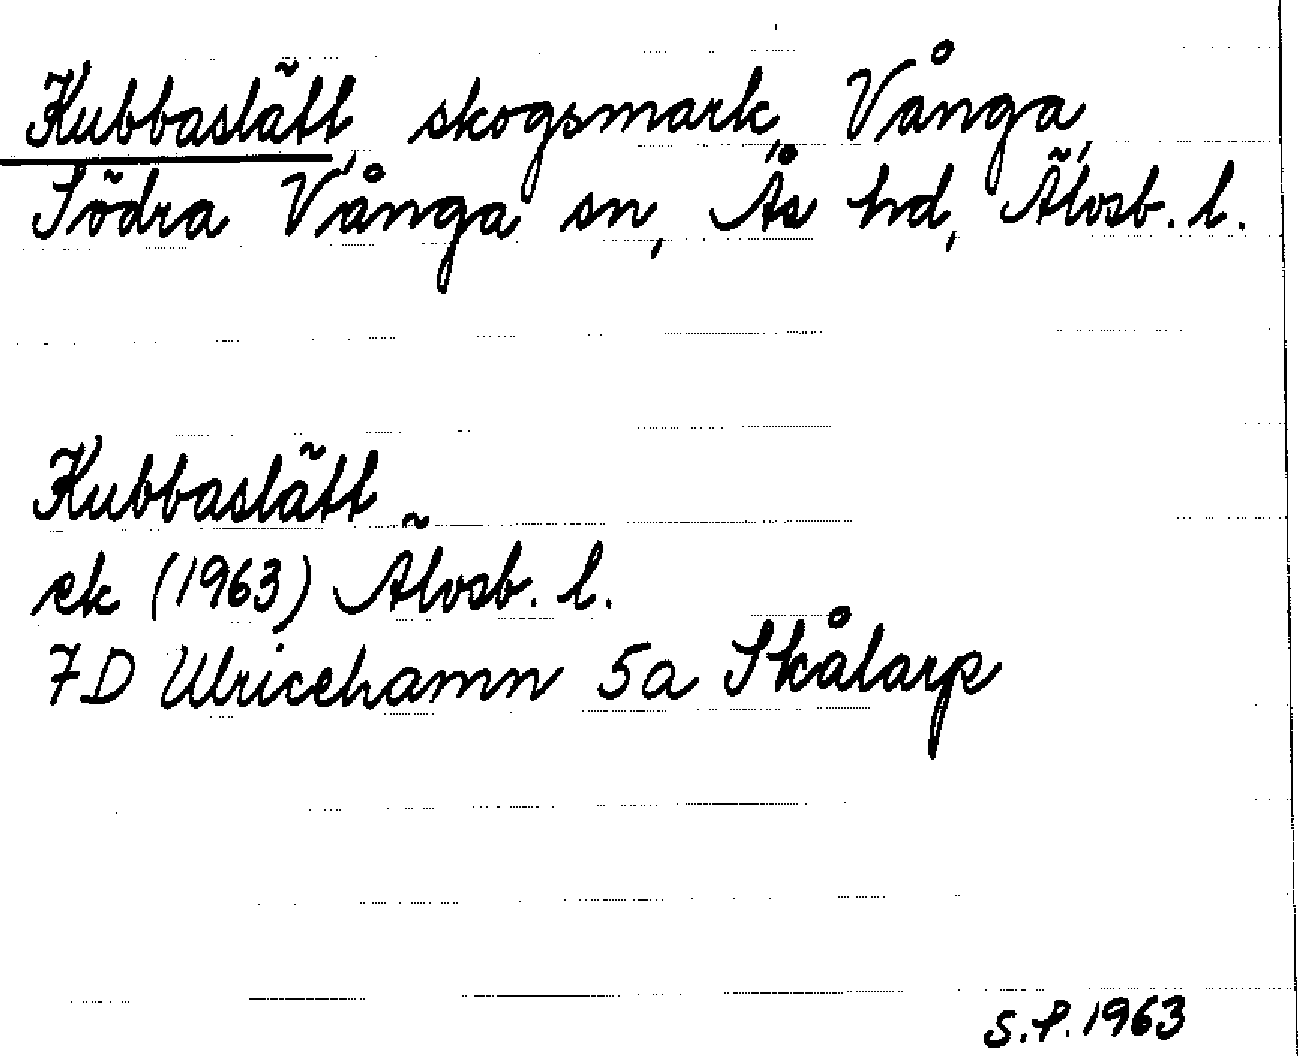 Kubbaslätt, skogsmark, Vånga,
Södra Vånga sn, Ås hd, Älvsb. l.
Kubbaslätt
ek (1963) Älvsb. l.
7D Ulricehamn 5a Skålarp
S.P. 1963